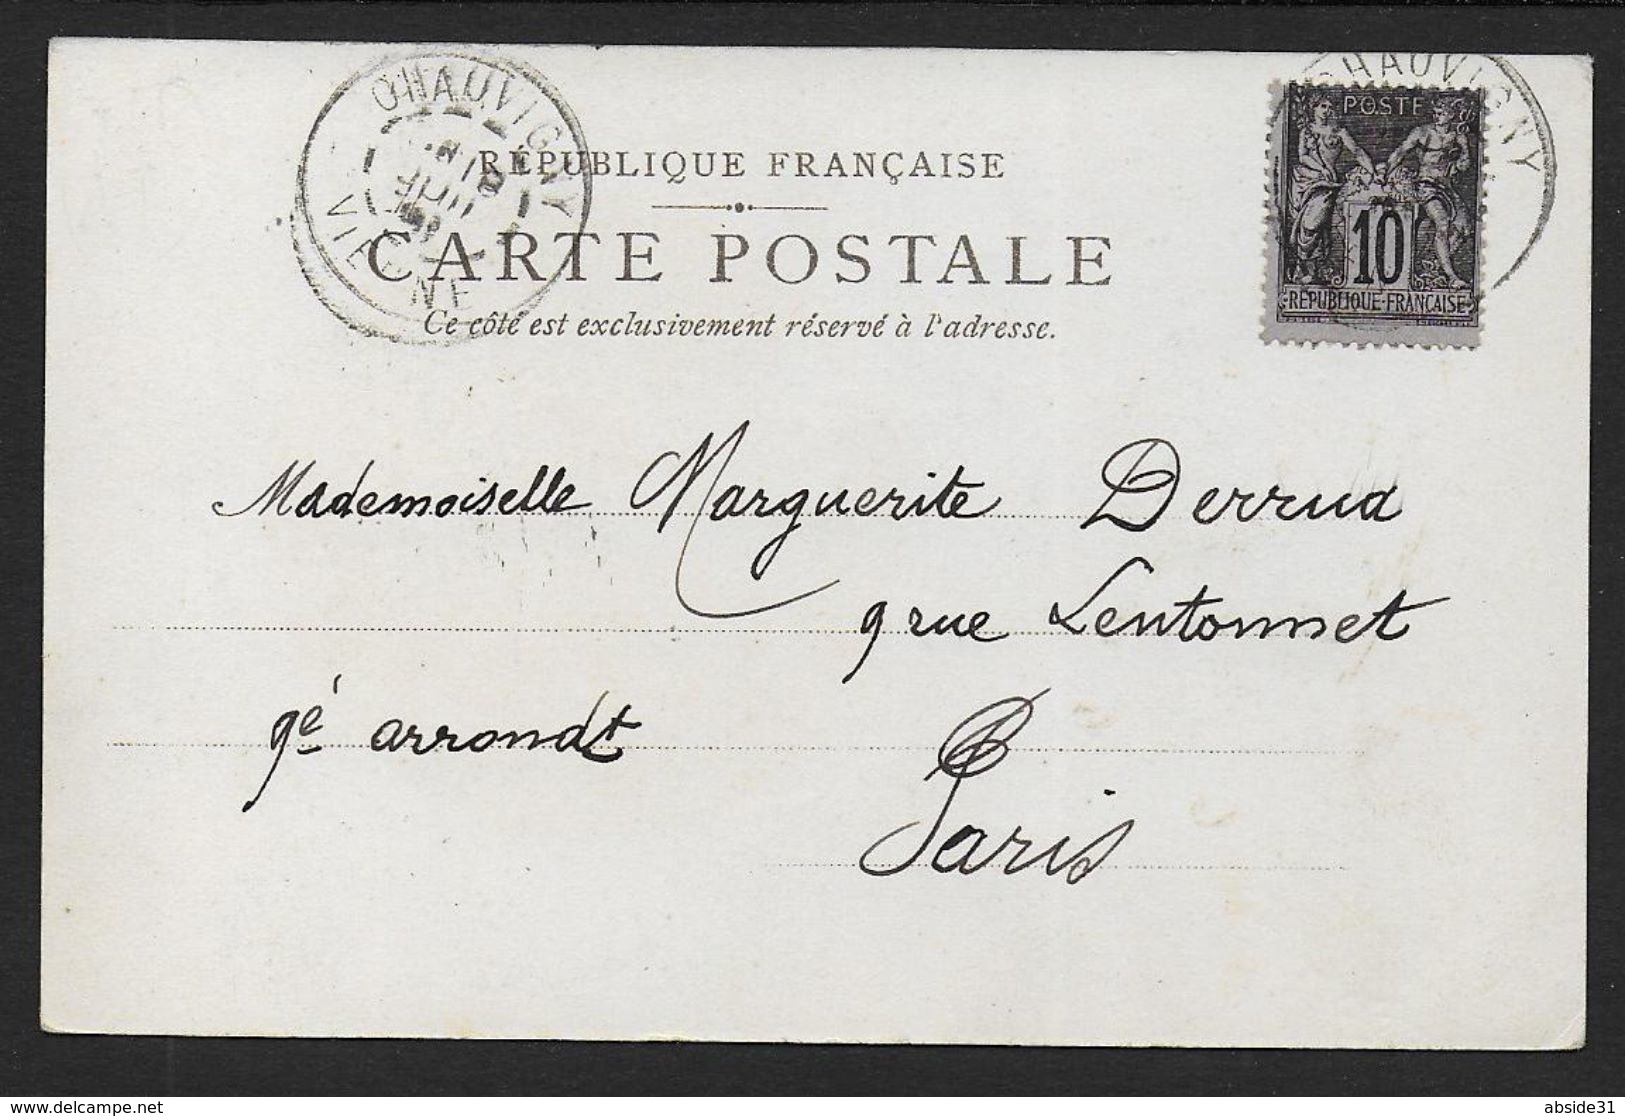 CHAUVIGNY
VIENNE
RÉPUBLIQUE FRANÇAISE
CARTE POSTALE
Ce côté est exclusivement réservé à l'adresse.
CHAUVIGNY
POSTE
10
RÉPUBLIQUE FRANÇAISE
Mademoiselle Marguerite Derrua
9 rue Lentonnet
9e arrondt
Paris
delcampe.net
abside31